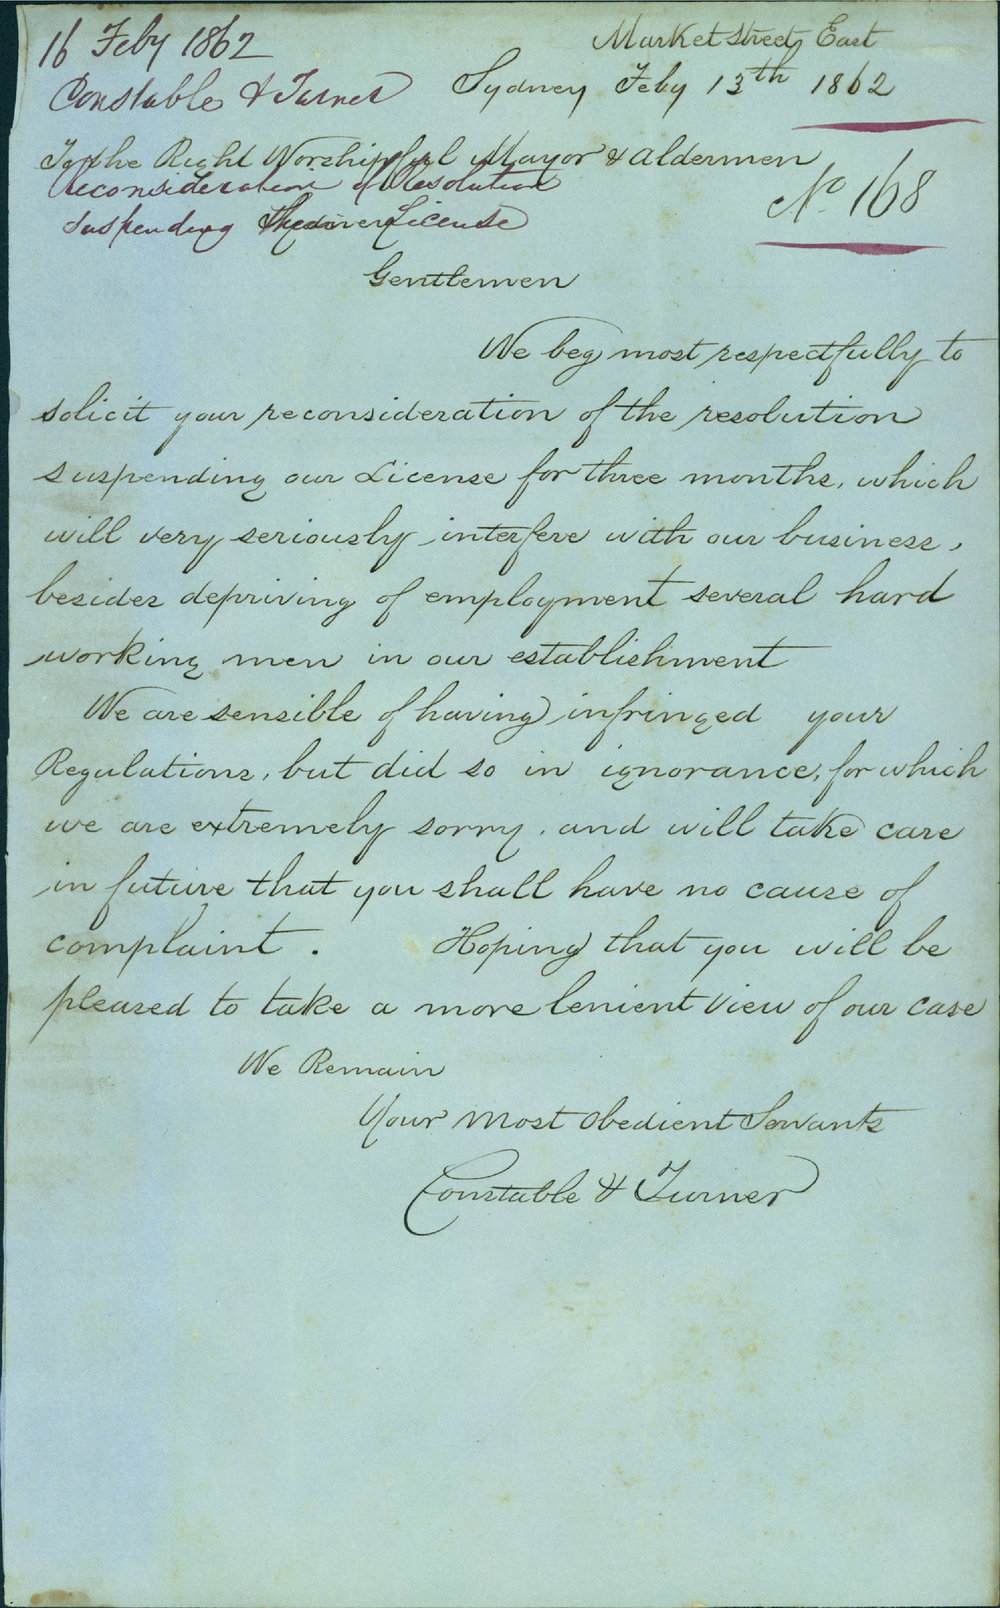 16 Feby 1862
Constable & Turner
Market Street East
Sydney Feby 13th 1862
To the Right Worshipful Mayor & Aldermen
Reconsideration of Resolution
Suspending their License
No 168
Gentlemen
We beg most respectfully to
solicit your reconsideration of the resolution
suspending our License for three months, which
will very seriously interfere with our business,
besides depriving of employment several hard
working men in our establishment
We are sensible of having infringed your
Regulations, but did so in ignorance, for which
we are extremely sorry, and will take care
in future that you shall have no cause of
complaint. Hoping that you will be
pleased to take a more lenient view of our case
We Remain
Your Most Obedient Servants
Constable & Turner